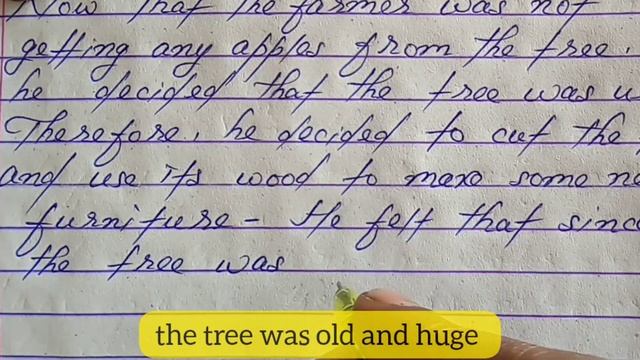 Now that the farmer was not
getting any apples from the tree,
he decided that the tree was
Therefore, he decided to cut the
and use its wood to make some
furniture - He felt that
the tree was
the tree was old and huge